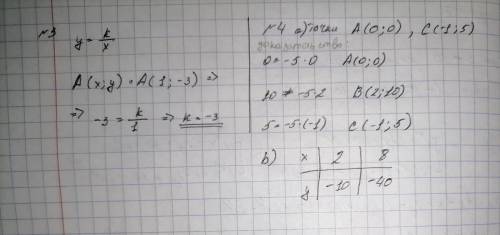 №3
y = k/x
A(x;y) = A(1;-3) =>
=> -3 = k/1 => k = -3
№4 а) точки A(0;0), C(-1;5)
доказательство:
0 = -5·0 A(0;0)
10 ≠ -5·2 B(2;10)
5 = -5·(-1) C(-1;5)
b) x 2 8
y -10 -40